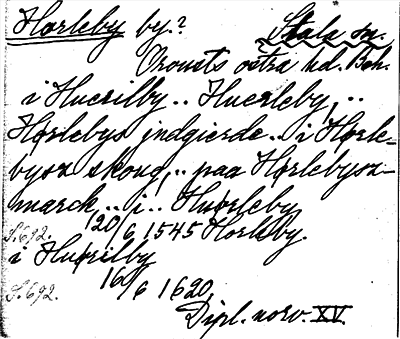 Hørleby by.? Stala sn.
Orousts östra hd. Boh.
i Huerilby .. Huerleby, ..
Hørlebys jndgierde .. i Hørle-
bysz skoug, .. paa Hørlebysz
marck, .. i .. Huørleby
S. 692. 20/6 1545 Horleby.
i Huørilby
S. 692. 16/6 1620,
Dipl. norv. XV.